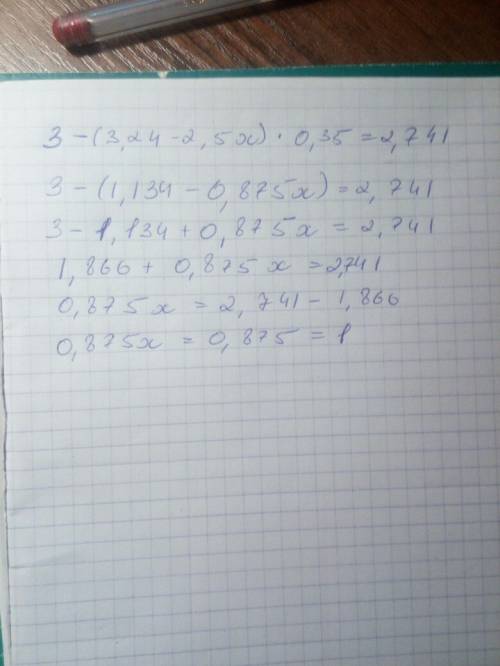 3 - (3,24 - 2,5x) · 0,35 = 2,741
3 - (1,134 - 0,875x) = 2,741
3 - 1,134 + 0,875x = 2,741
1,866 + 0,875x = 2,741
0,875x = 2,741 - 1,866
0,875x = 0,875 = 1